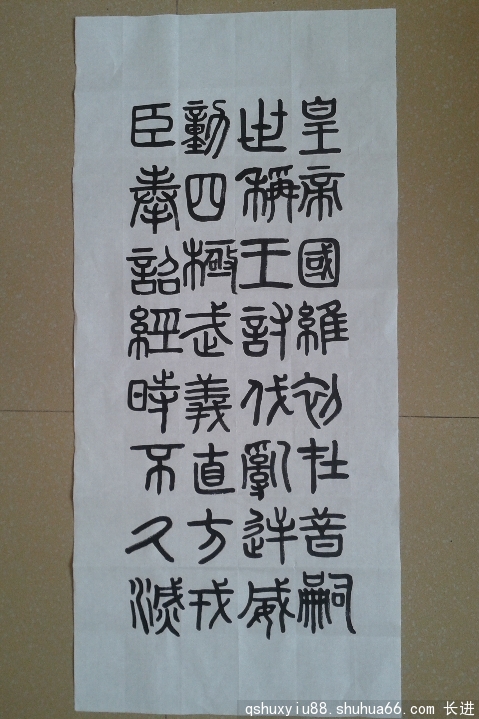 皇帝國維初在昔嗣
世稱王討伐亂逆威
動四極武義直方戎
臣奉詔經時不久滅
qshuxyiu88.shuhua66.com 长进